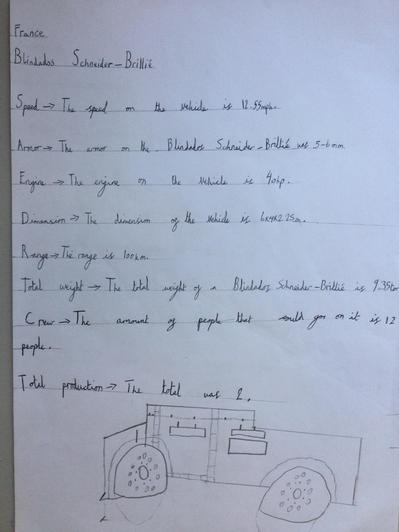 France
Blindados Schneider-Brillié
Speed → The speed on the vehicle is 12.55mph.
Armor → The armor on the Blindados Schneider-Brillié was 5-6mm
Engine → The engine on the vehicle is 40hp.
Dimension → The dimension of the vehicle is 6x4x2.25m.
Range → The range is 100km.
Total weight → The total weight of a Blindados Schneider-Brillié is 9.35ton
Crew → The amount of people that could go on it is 12
people.
Total production → The total was 2.